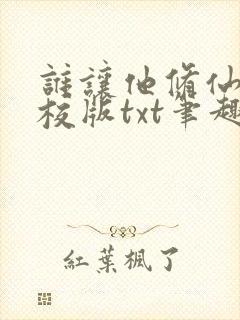 誰讓他修仙
校版txt筆趣
紅葉楓了